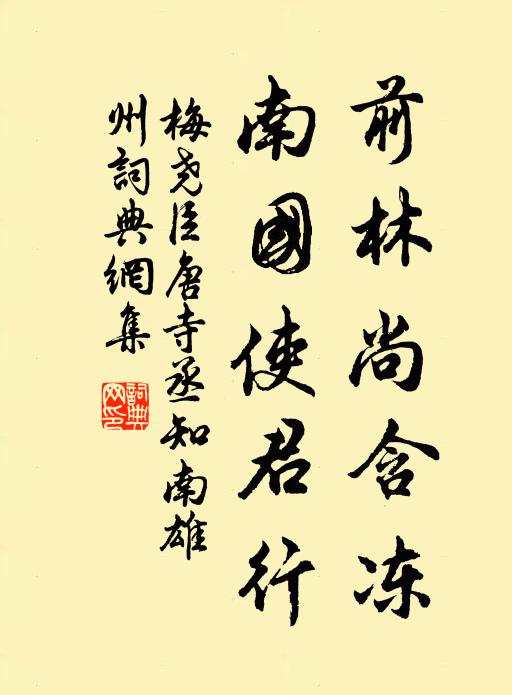 前林尚含冻
南國使君行
梅尧臣唐寺丞知南雄
州詞典網集
詞典网印